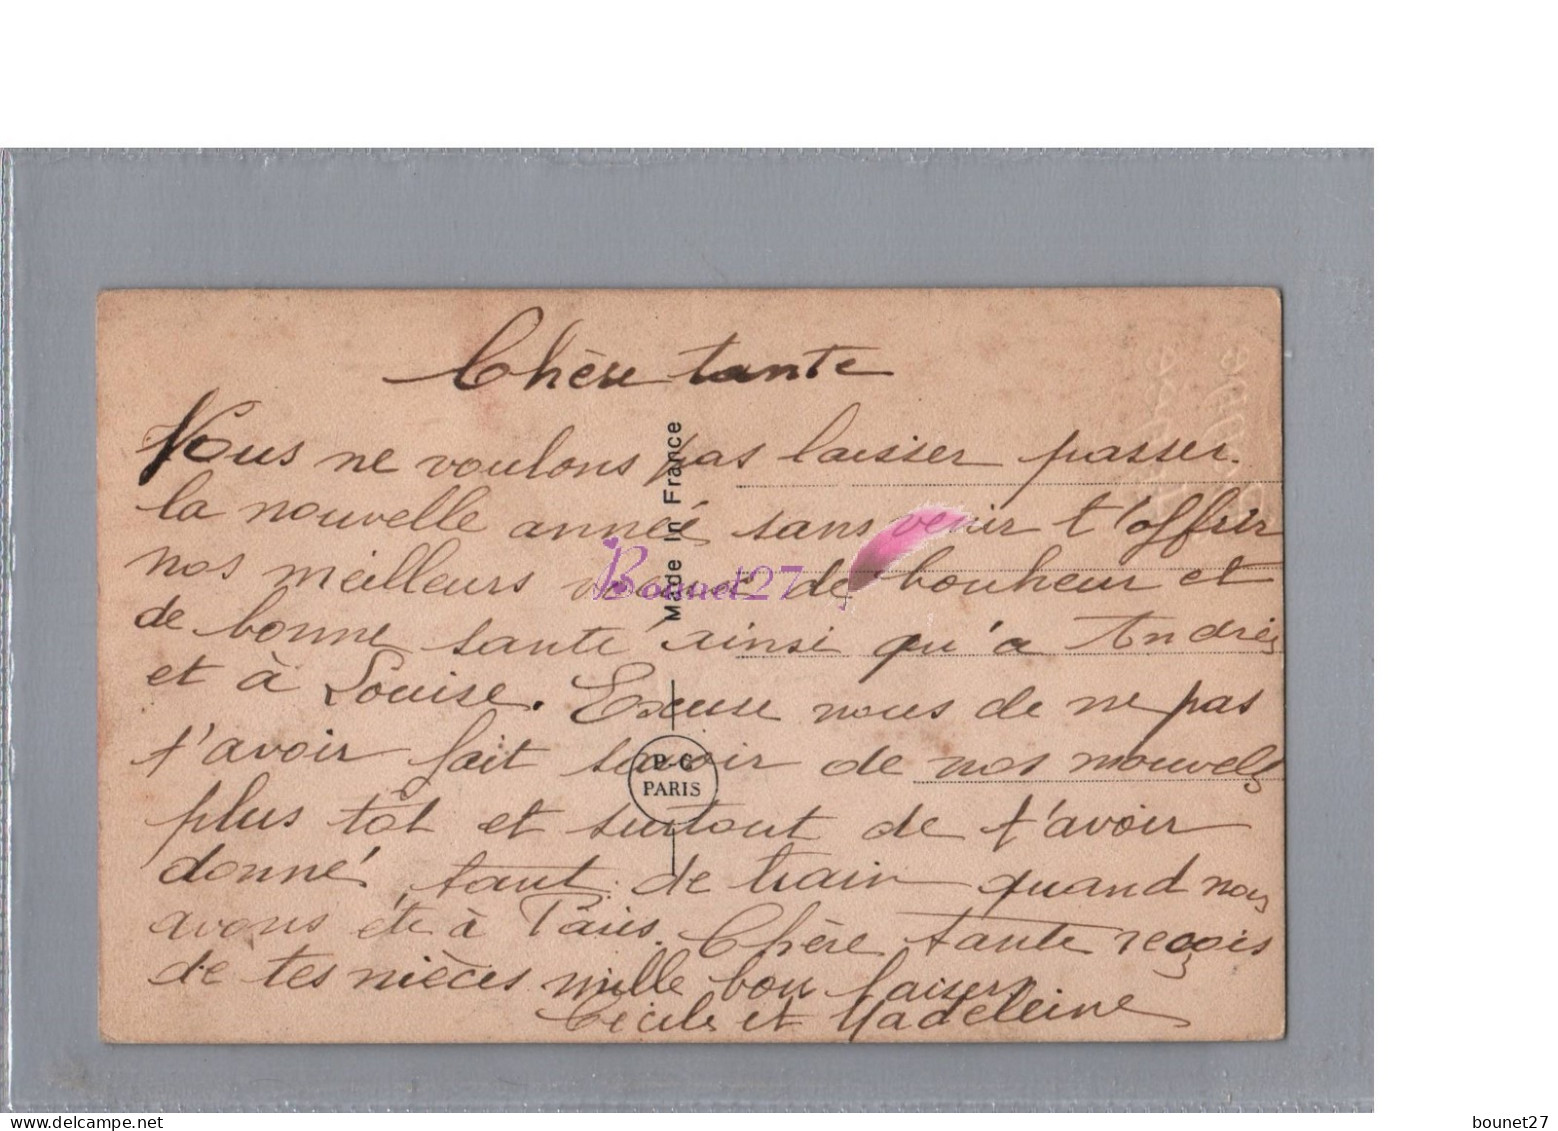 Chère tante
Nous ne voulons pas laisser passer
la nouvelle année sans venir t'offrir
nos meilleurs voeux de bonheur et
de bonne santé ainsi qu'a Andrée
et à Louise. Excuse nous de ne pas
t'avoir fait savoir de nos nouvels
plus tôt et surtout de t'avoir
donné tant de train quand nous
avons été à Paris. Chère tante reçois
de tes nièces mille bon baisers
Cécile et Madeleine
Made in France
P-C
PARIS
Bounet27
bounet27